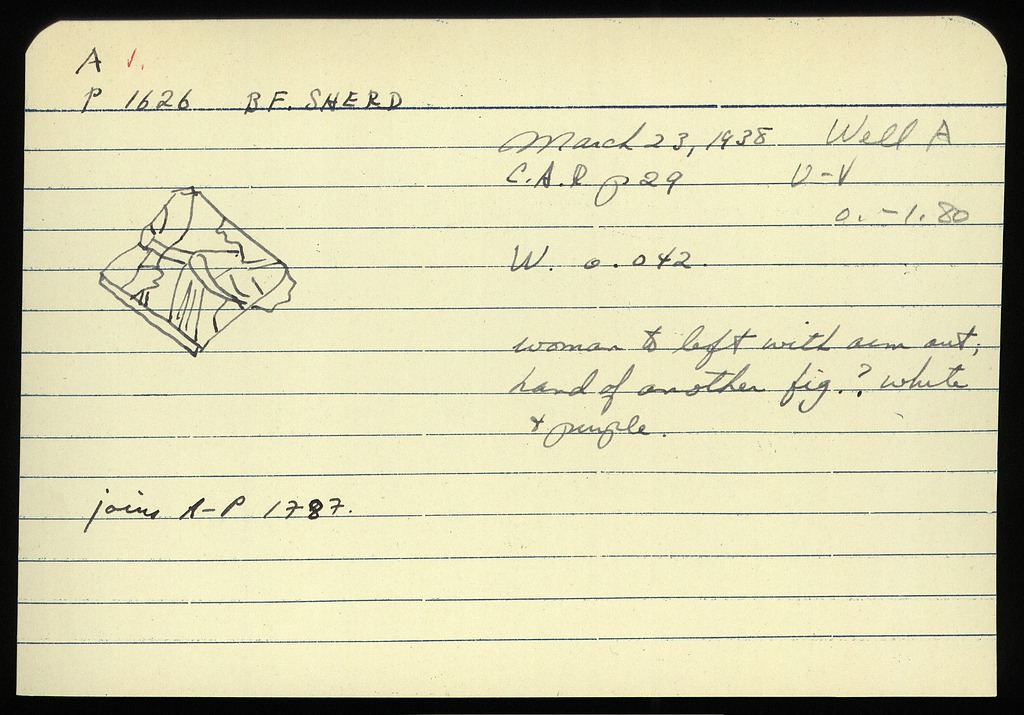 A ✓.
P 1626 BF. SHERD
March 23, 1938 Well A
C.A.R p 29 U-V
0.-1.80
W. 0.042.
woman to left with arm out;
hand of another fig.? white
& purple.
joins A-P 1787.